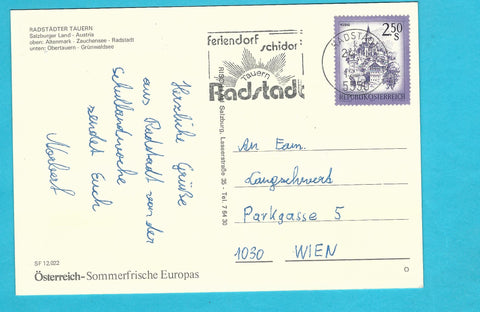 RADSTÄDTER TAUERN
Salzburger Land - Austria
oben: Altenmark - Zauchensee - Radstadt
unten: Obertauern - Grünwaldsee
Herzliche Grüße
aus Radstadt von der
Schullandwoche
sendet Euch
Norbert
SF 12.022
Österreich-Sommerfrische Europas
feriendorf
schidorf
Tauern
Radstadt
RADSTADT
5550
2.50
S
REPUBLIK ÖSTERREICH
Salzburg, Lasserstraße 35 - Tel. 7 64 30
An Fam.
Langschwert
Parkgasse 5
1030 WIEN